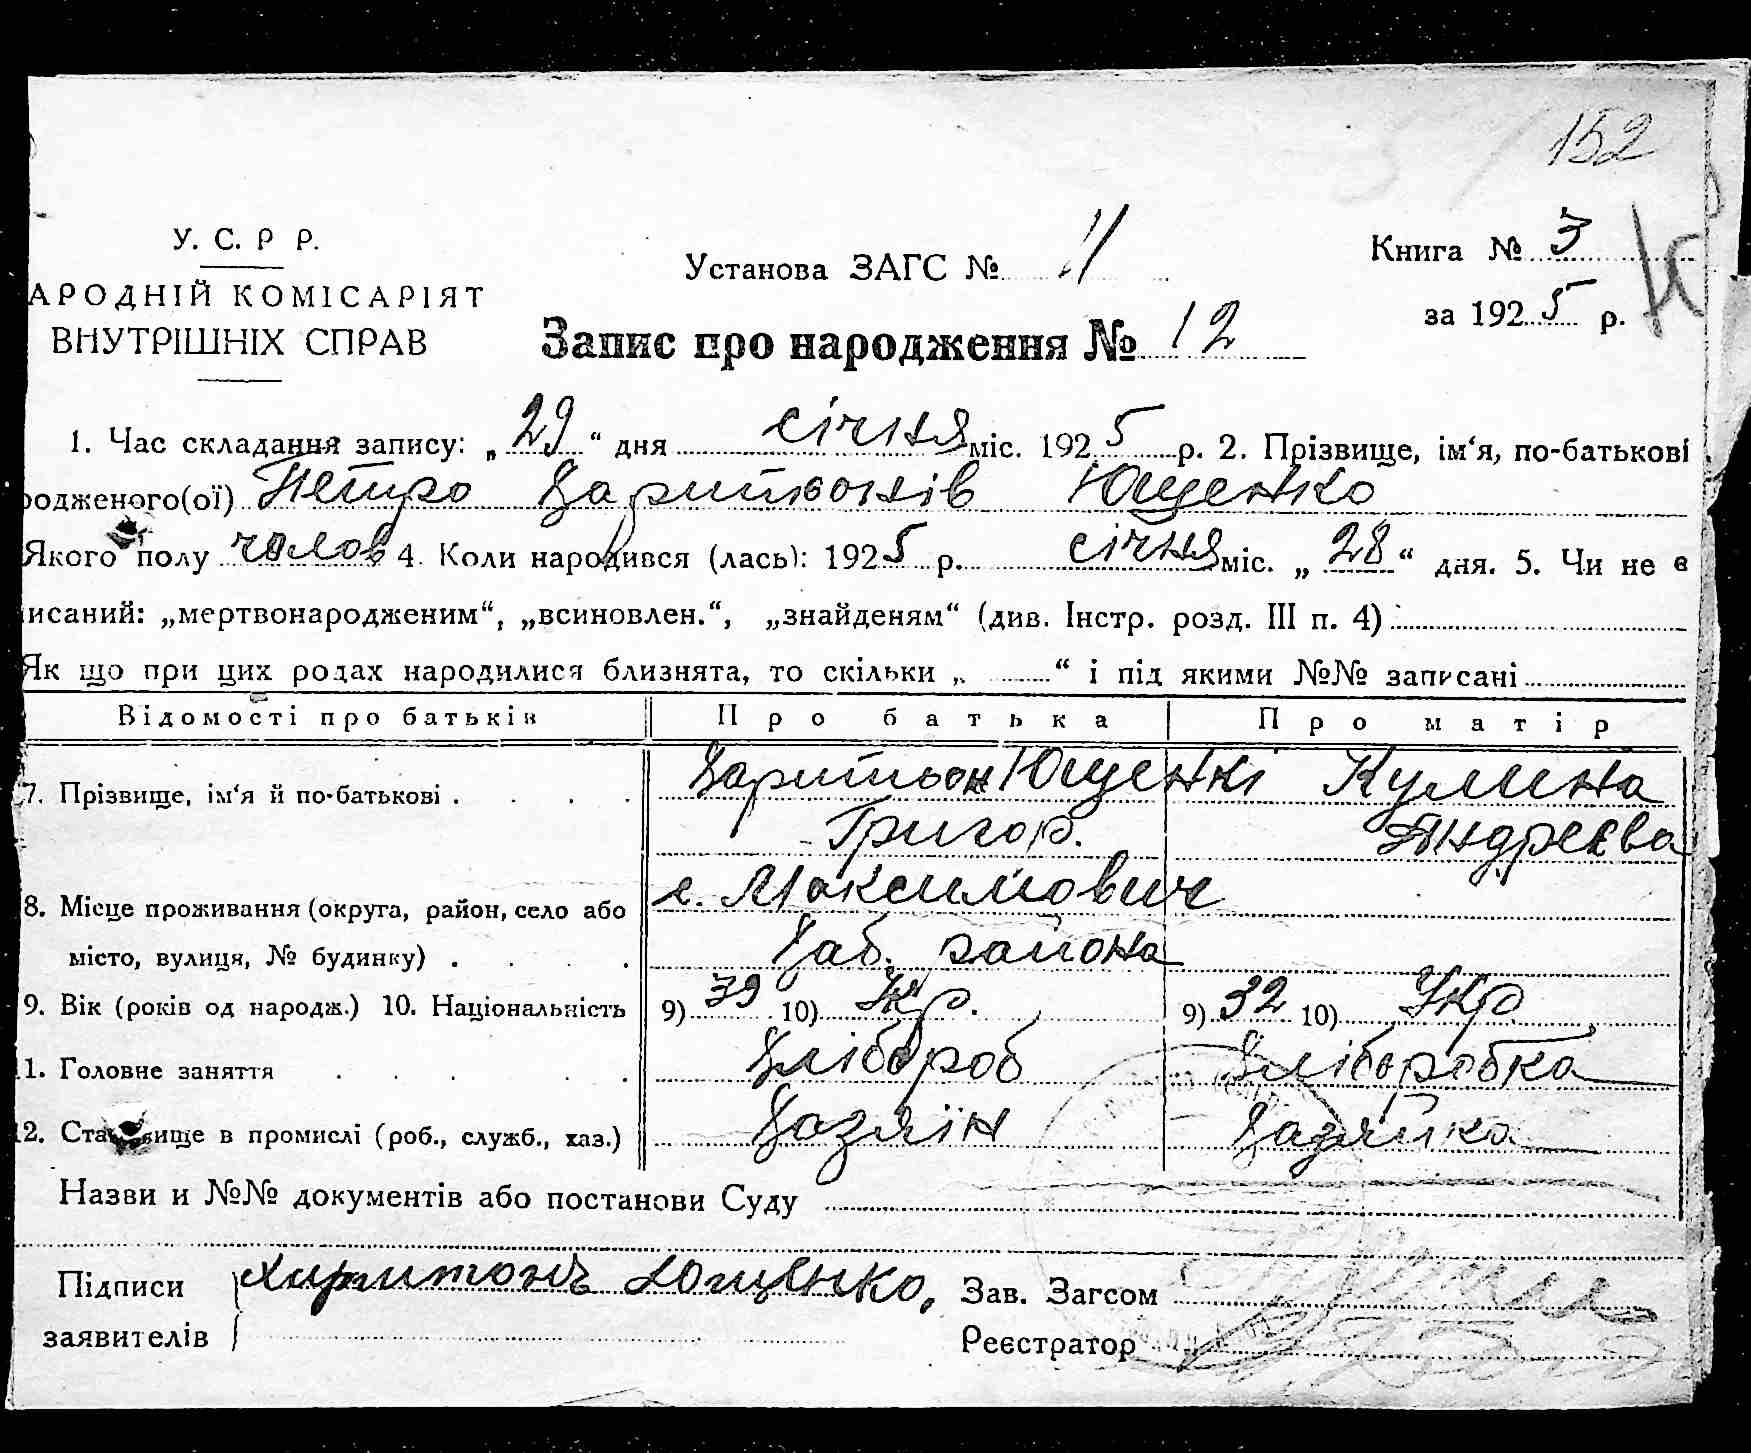 152
У. С. Р Р.
АРОДНІЙ КОМІСАРІЯТ
ВНУТРІШНІХ СПРАВ
Установа ЗАГС № 11
Книга № 3
за 1925 р.
Запис про народження № 12
1. Час складання запису: „29“ дня січня міс. 1925 р. 2. Прізвище, ім‘я, по-батькові
родженого(ої) Петро Харитонів Ющенко
Якого полу чолов 4. Коли народився (лась): 1925 р. січня міс. „28“ дня. 5. Чи не в
исаний: „мертвонародженим“, „всиновлен.“, „знайденям“ (див. Інстр. розд. III п. 4)
Як що при цих родах народилися близнята, то скільки „ “ і під якими №№ записані
Відомості про батьків Про батька Про матір
7. Прізвище, ім‘я й по-батькові Харитон Ющенкі Кулина
Григор. Андреєва
8. Місце проживання (округа, район, село або с. Максимович
місто, вулиця, № будинку) Хаб. района
9. Вік (років од народж.) 10. Національність 9) 39 10) Укр. 9) 32 10) Укр
11. Головне заняття Хлібороб Хлібаробка
12. Становище в промислі (роб., служб., хаз.) Хазяїн Хазяйка
Назви и №№ документів або постанови Суду
Підписи Харитонъ Ющенко, Зав. Загсом
заявителів Реєстратор